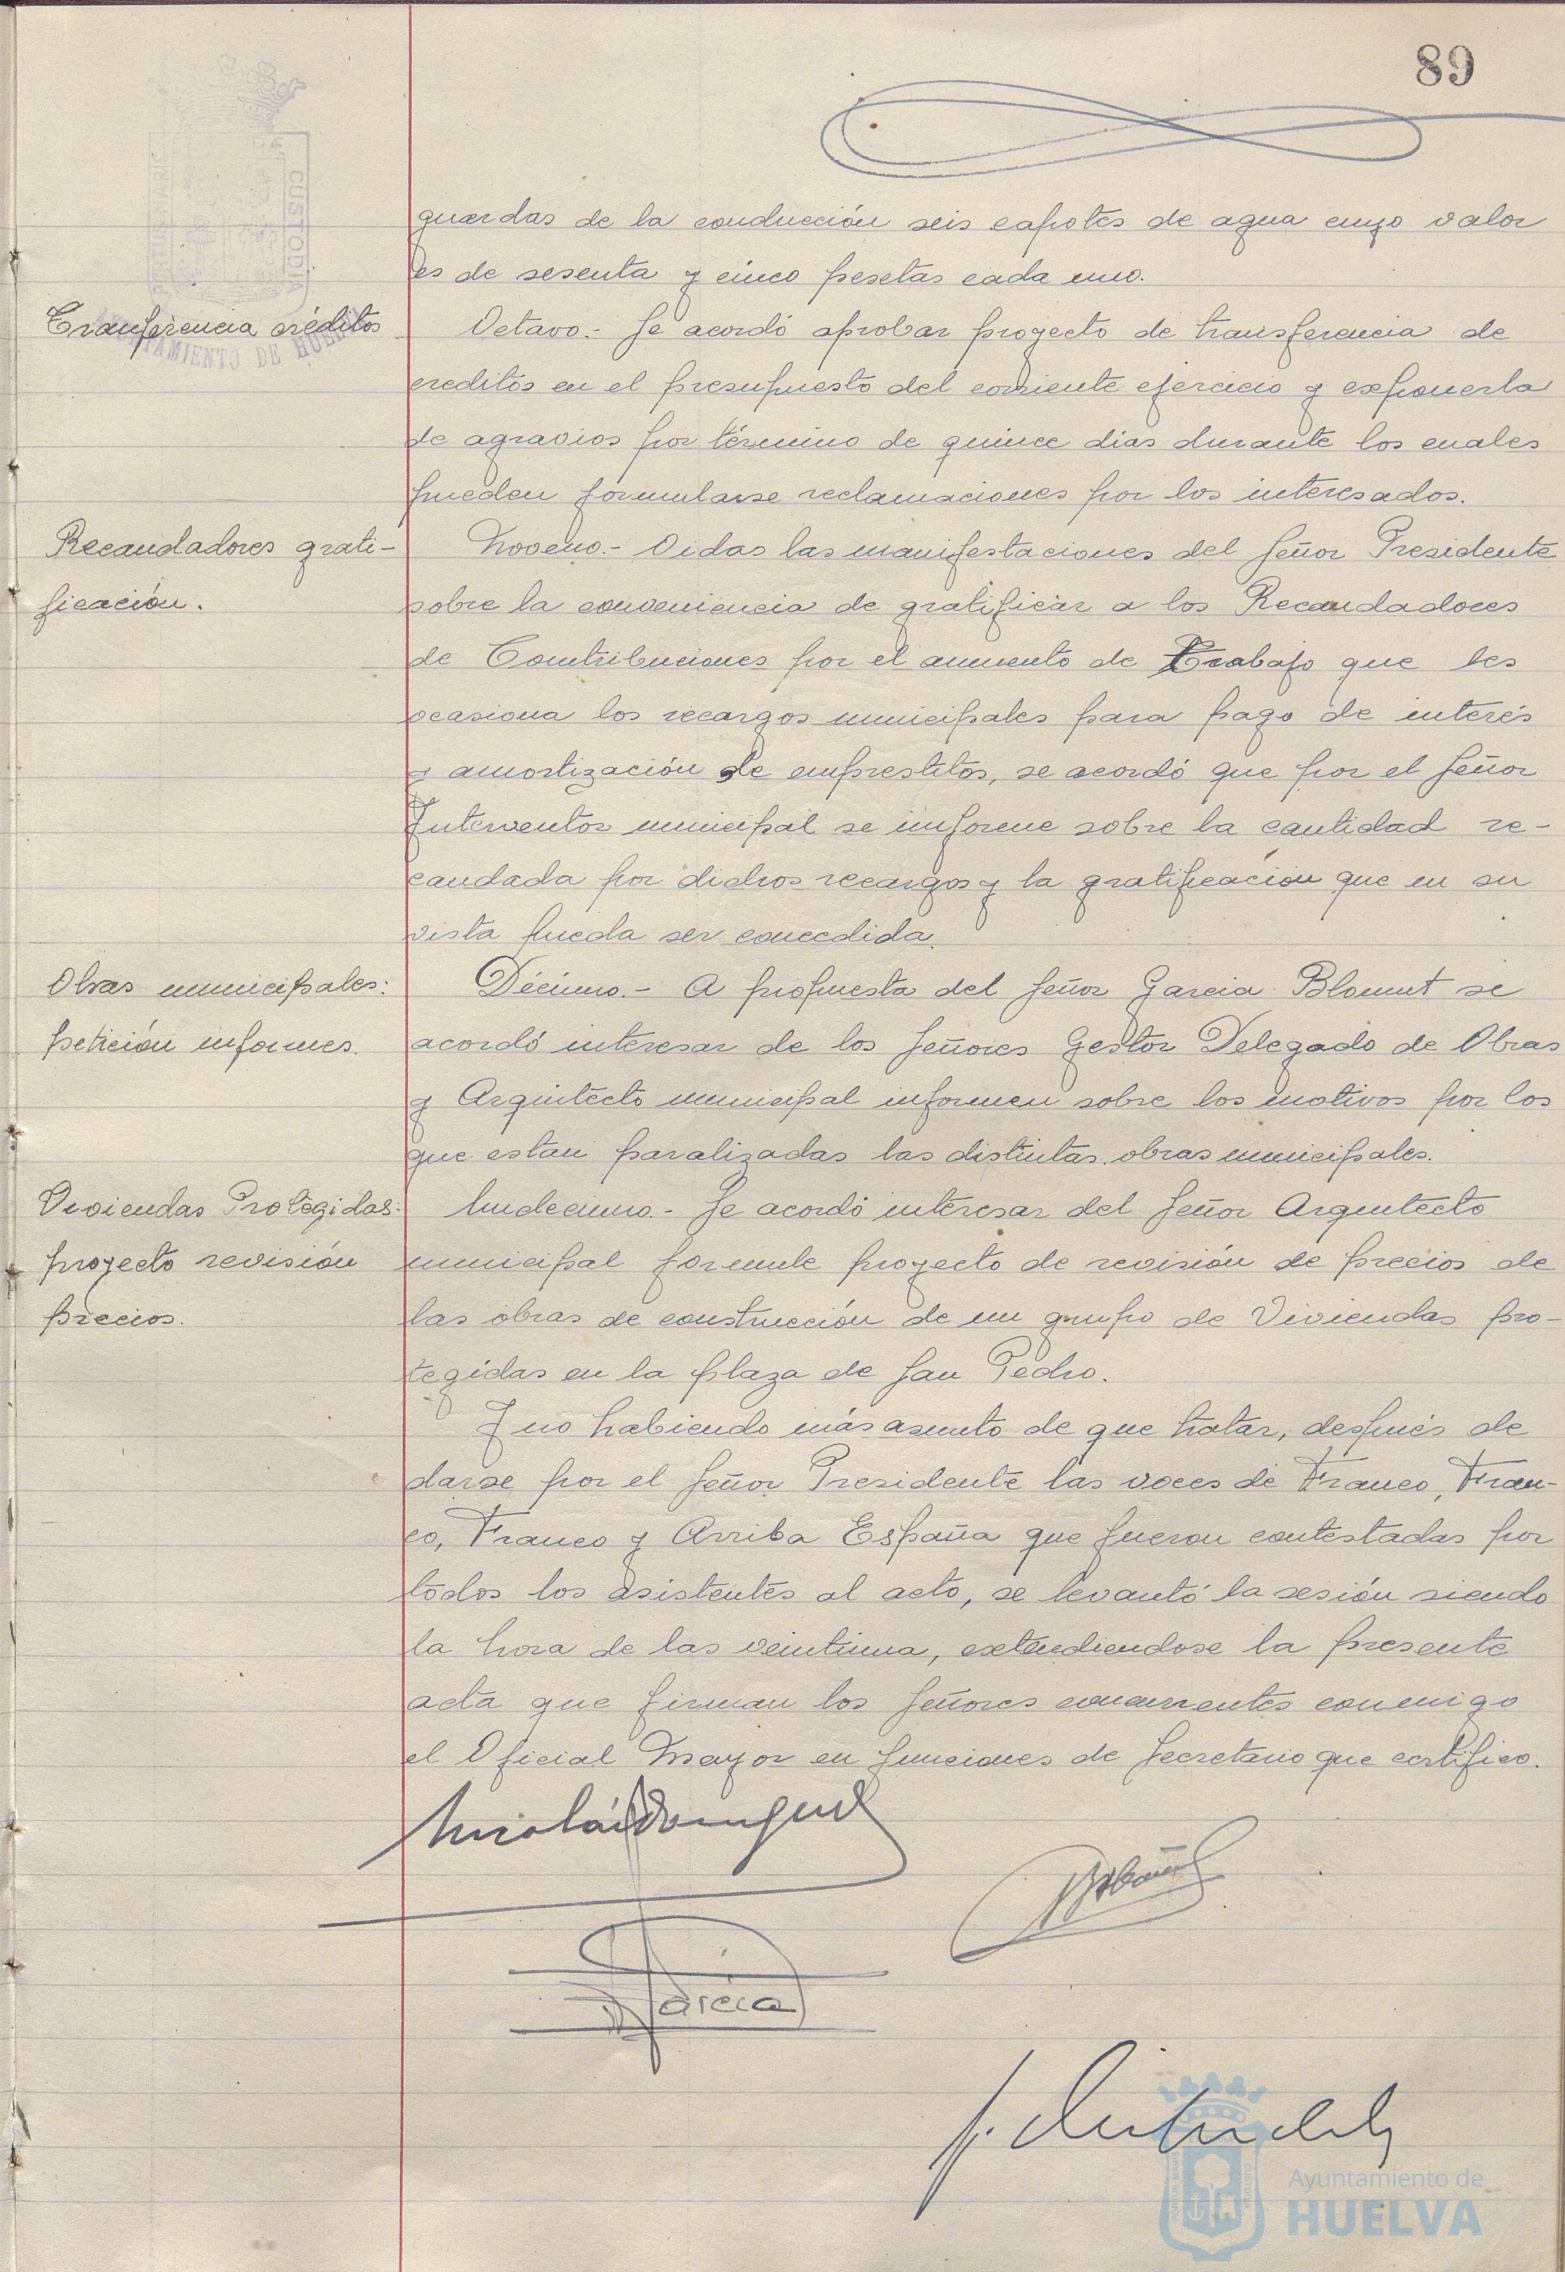 89
guardas de la conducción seis capotes de agua cuyo valor
es de sesenta y cinco pesetas cada uno.
Tranferencia créditos
Octavo.- Se acordó aprobar proyecto de transferencia de
creditos en el presupuesto del corriente ejercicio y exponerla
de agravios por término de quince dias durante los cuales
pueden formularse reclamaciones por los interesados.
Recaudadores grati-
ficación.
Noveno.- Oidas las manifestaciones del Señor Presidente
sobre la conveniencia de gratificar a los Recaudadores
de Contribuciones por el aumento de Trabajo que les
ocasiona los recargos municipales para pago de interés
y amortización de emprestitos, se acordó que por el Señor
Interventor municipal se informe sobre la cantidad re-
caudada por dichos recargos y la gratificación que en su
vista pueda ser concedida.
Obras municipales:
petición informes.
Décimo.- A propuesta del Señor Garcia Blomut se
acordó interesar de los Señores Gestor Delegado de Obras
y Arquitecto municipal informen sobre los motivos por los
que estan paralizadas las distintas obras municipales.
Viviendas Protegidas:
proyecto revisión
precios.
Undecimo.- Se acordó interesar del Señor Arquitecto
municipal formule proyecto de revisión de precios de
las obras de construcción de un grupo de Viviendas pro-
tegidas en la plaza de San Pedro.
Y no habiendo más asunto de que tratar, después de
darse por el Señor Presidente las voces de Franco, Fran-
co, Franco y Arriba España que fueron contestadas por
todos los asistentes al acto, se levantó la sesión siendo
la hora de las veintiuna, extendiendose la presente
acta que firman los Señores concurrentes conmigo
el Oficial Mayor en funciones de Secretario que certifico.
Nicolás Dominguez
Garcia
CUSTODIA
AYUNTAMIENTO DE HUELVA
Ayuntamiento de
HUELVA